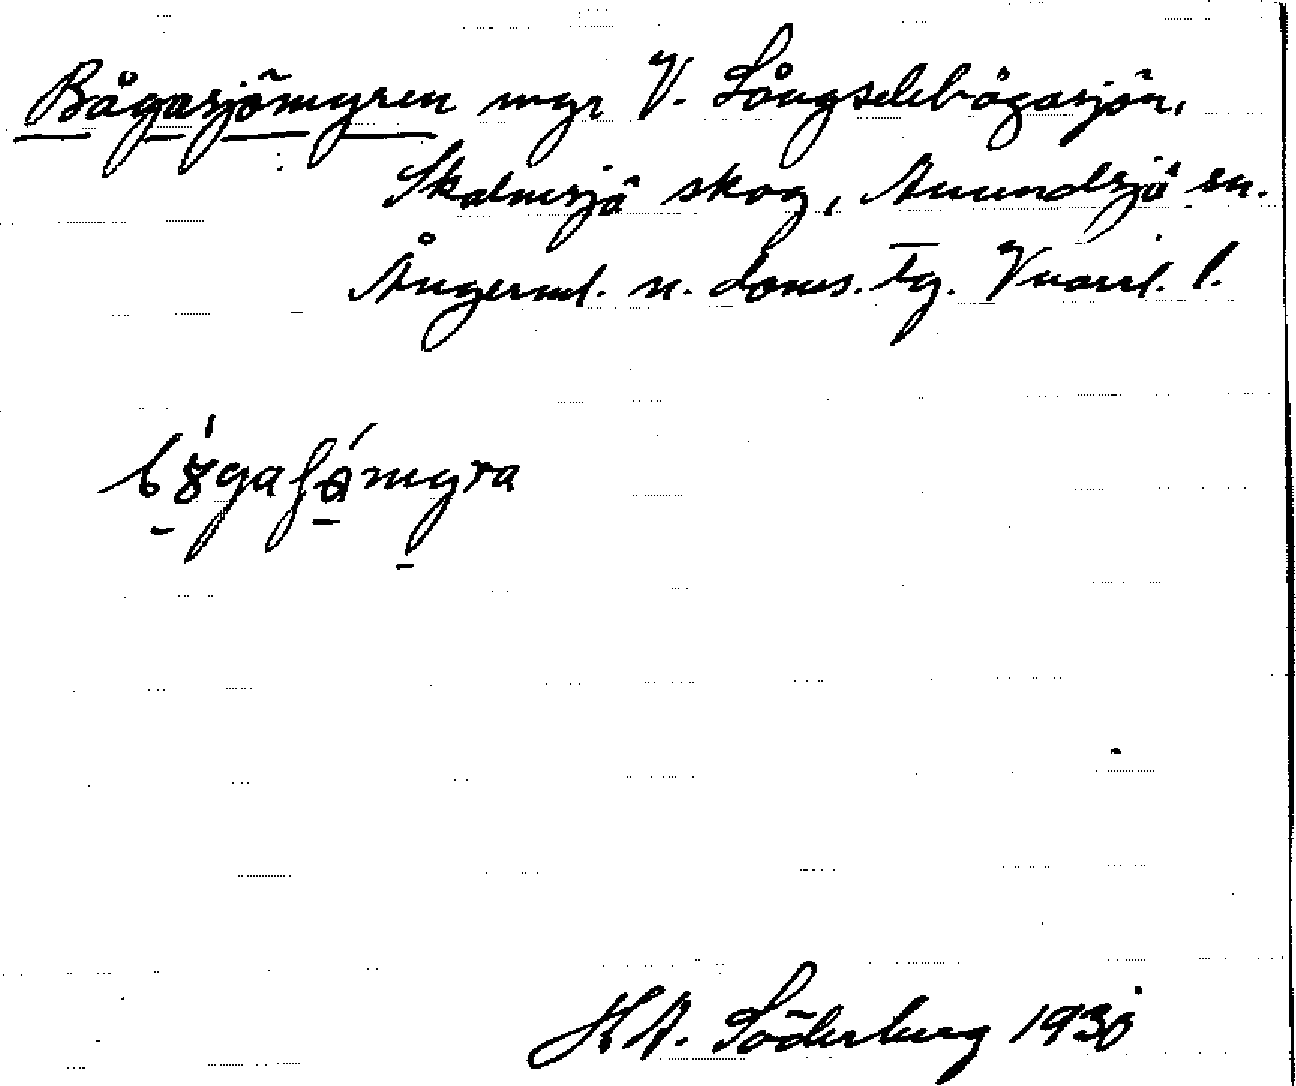 Bågasjömyren myr V. Långselebågasjön,
Skalmsjö skog, Anundsjö sn.
Ångerml. n. doms. tg. Vnorrl. l.
bågaʃömyra
K A. Söderberg 1930